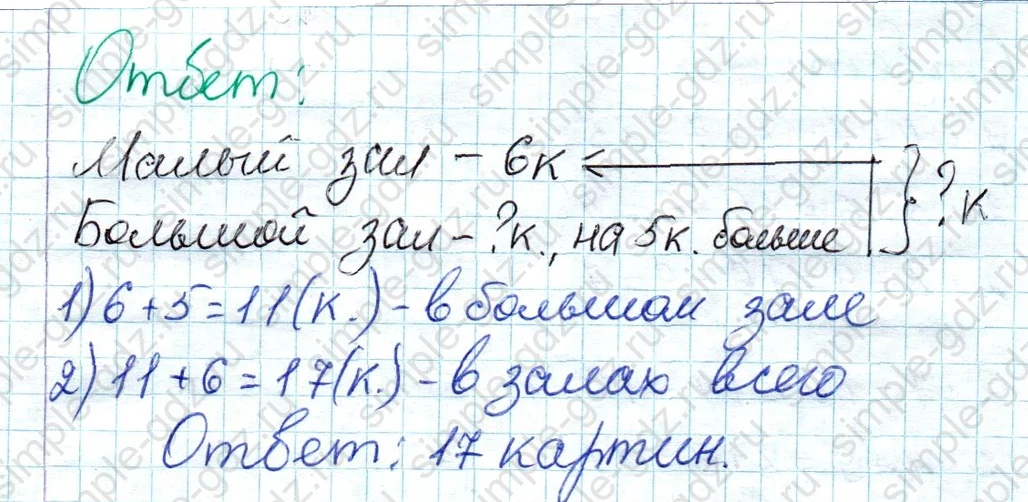 Ответ:
Малый зал - 6к
Большой зал - ?к., на 5к. больше } ?к
1) 6 + 5 = 11 (к.) - в большом зале
2) 11 + 6 = 17 (к.) - в залах всего
Ответ: 17 картин.
simple-gdz.ru